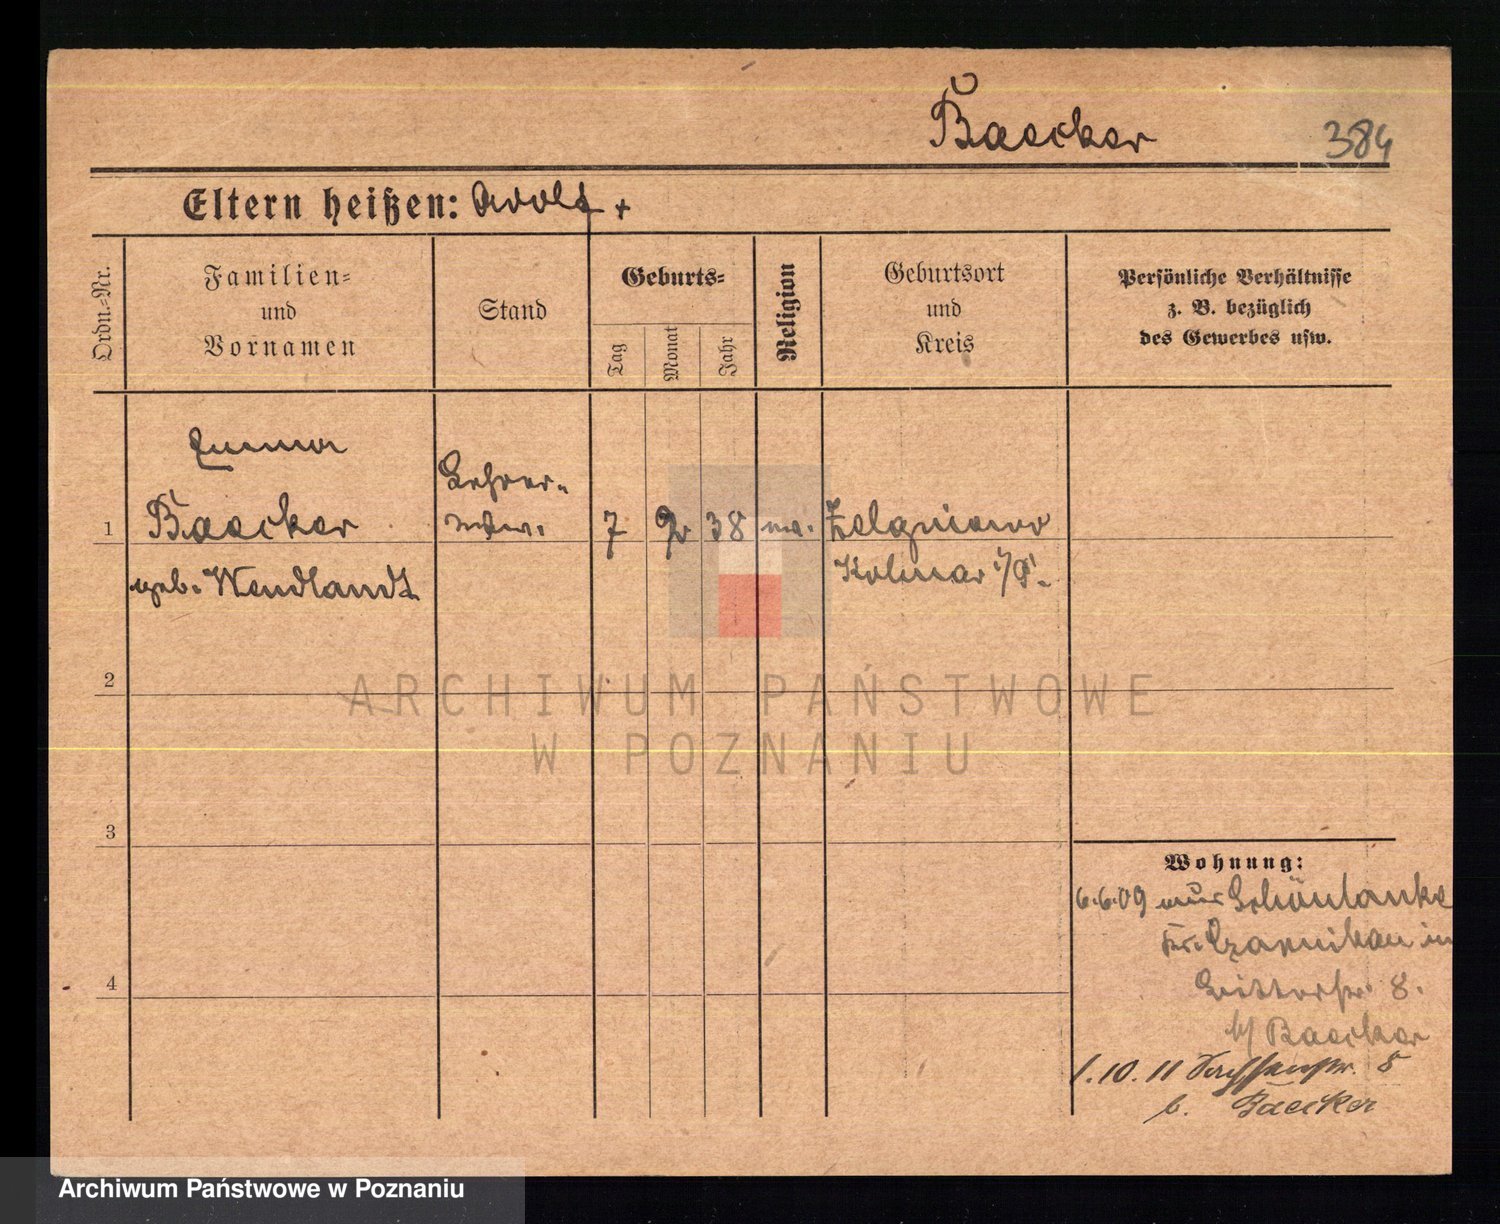 Baecker
384
Eltern heißen: Adolf +
Ordn.-Nr.
Familien-
und
Vornamen
Stand
Geburts-
Tag
Monat
Jahr
Religion
Geburtsort
und
Kreis
Persönliche Verhältnisse
z. B. bezüglich
des Gewerbes usw.
Emma
Lehrer-
1 Baecker wtw. 7 2 38 ev. Zelgniewo
geb. Wendlandt Kolmar i/P.
2
3
4
Wohnung:
6.6.09 aus Schönlanke
Kr. Czarnikau in
8.
b/ Baecker
1.10.11 8
b. Baecker
ARCHIWUM PAŃSTWOWE
W POZNANIU
Archiwum Państwowe w Poznaniu